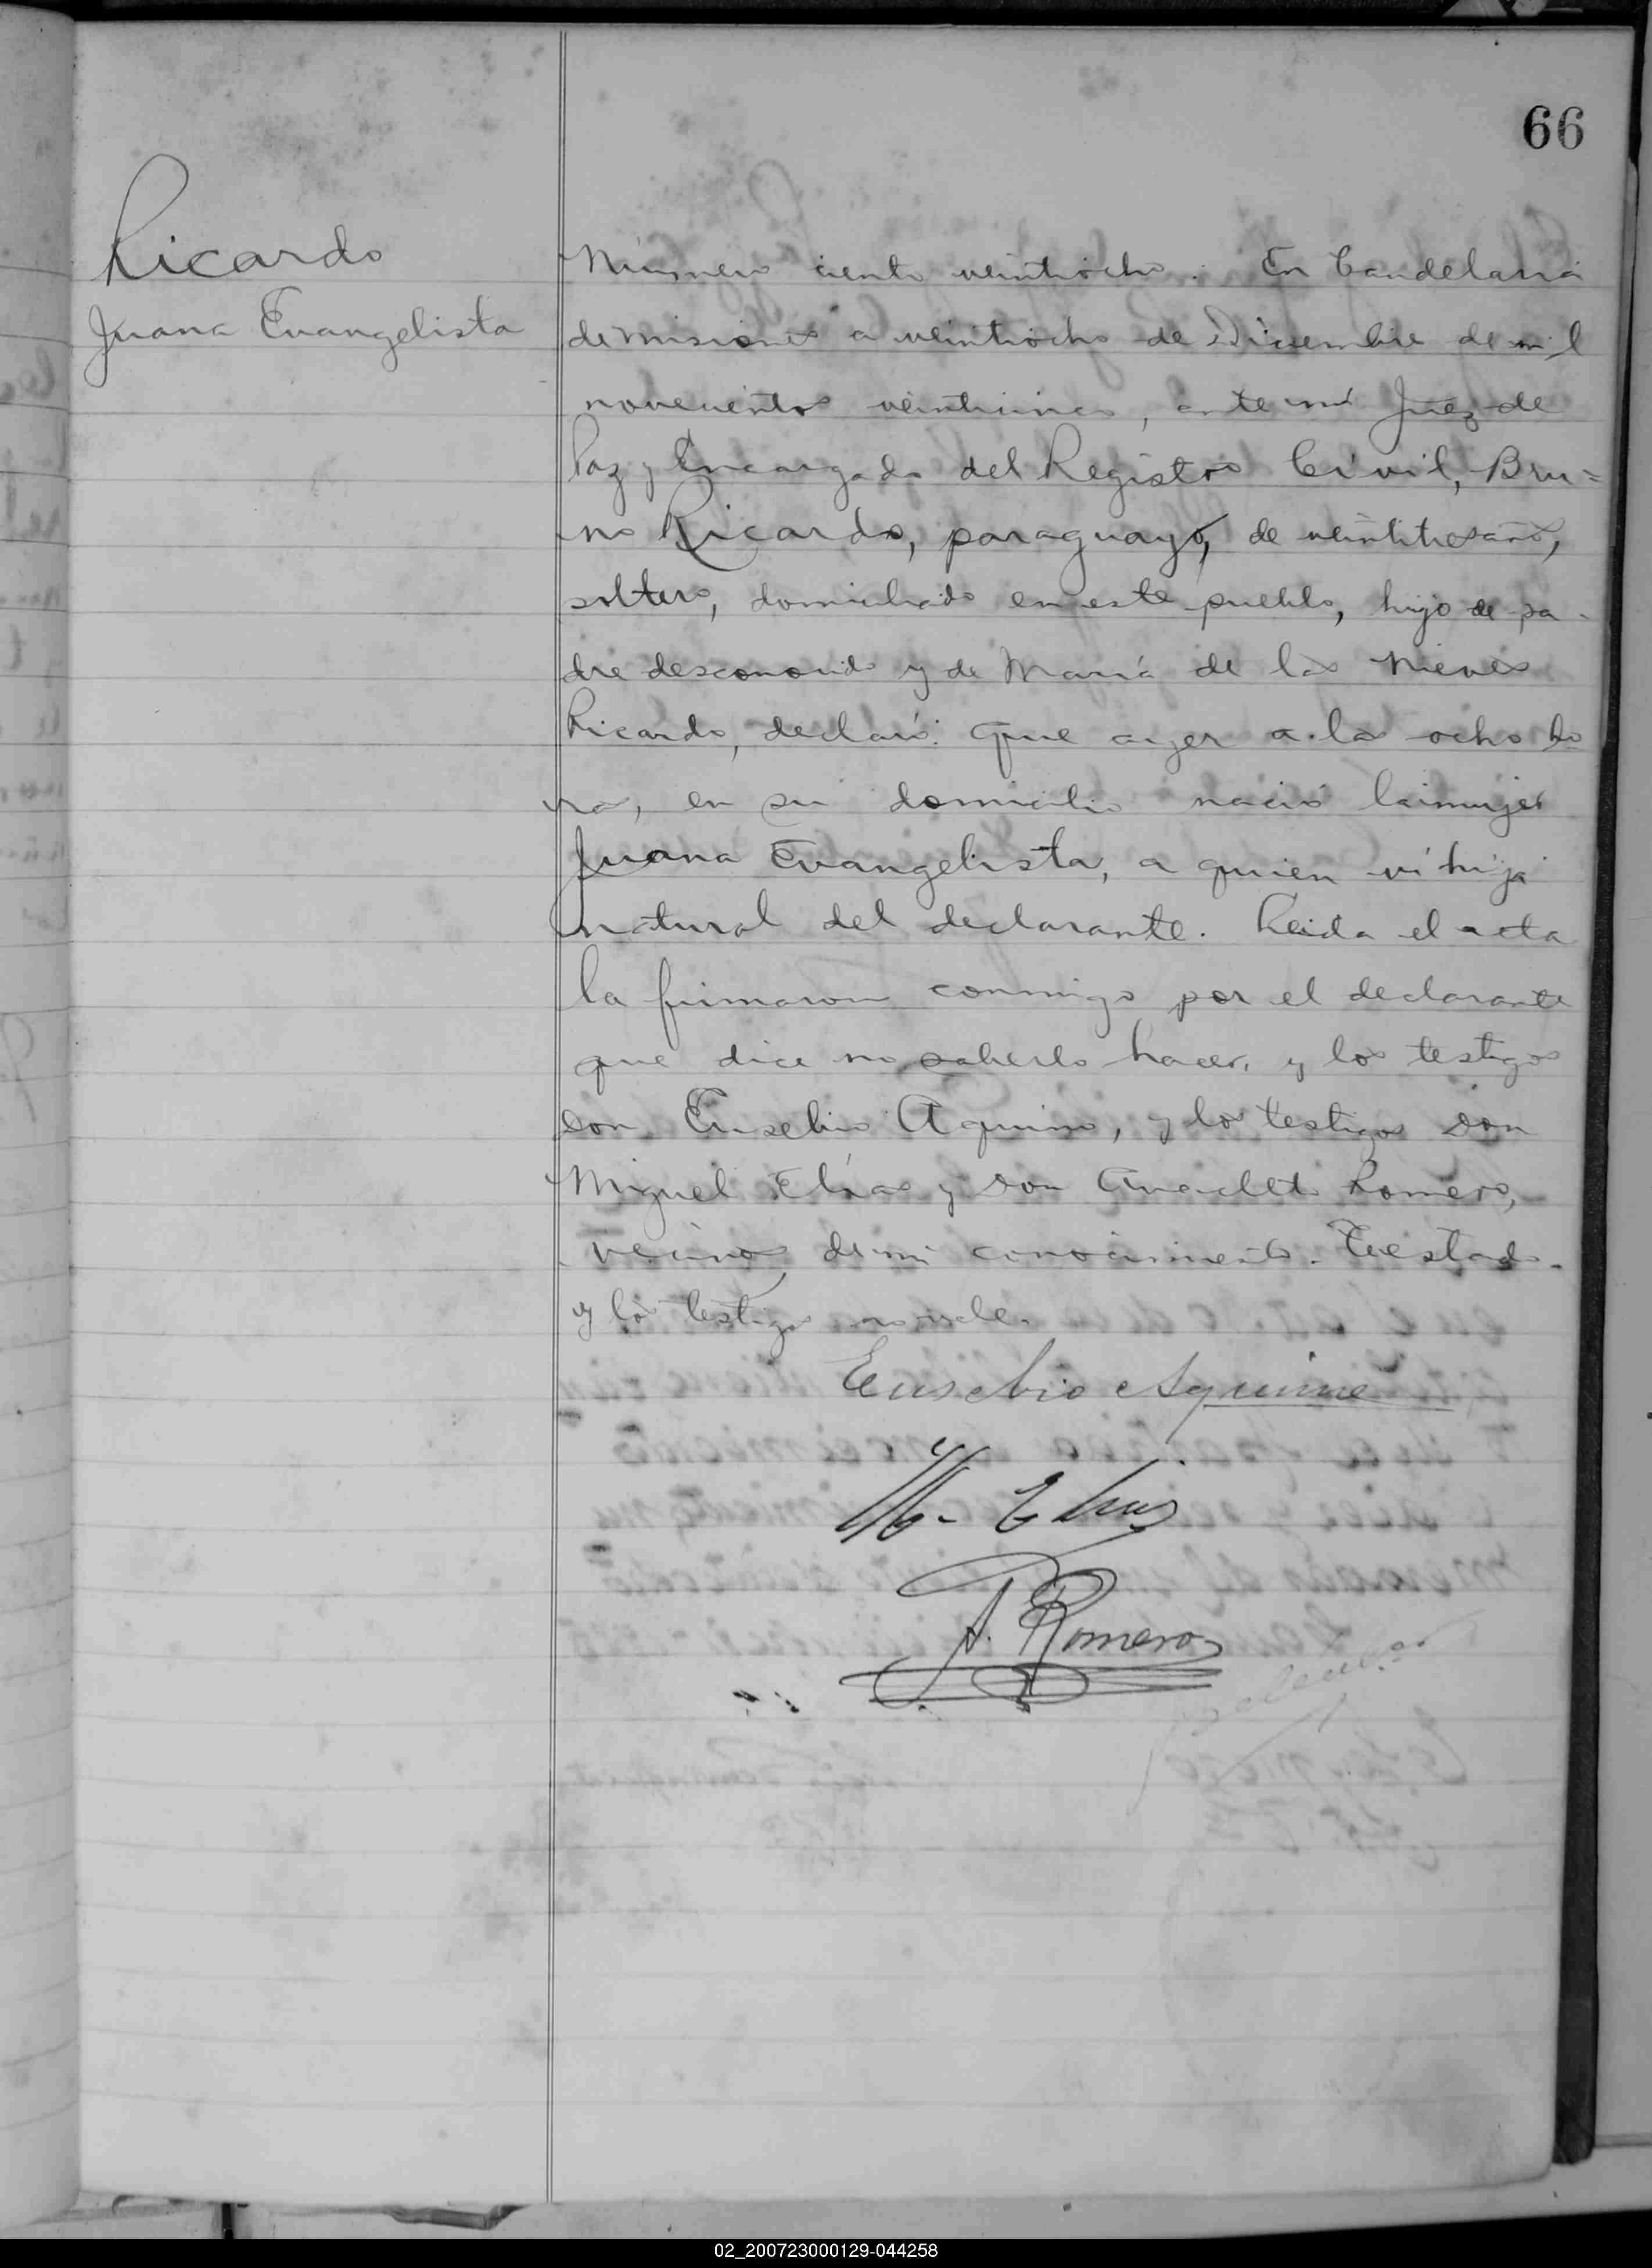 66
Ricardo
Juana Evangelista
Número ciento veintiocho. En Candelaria
de Misiones a veintiocho de Diciembre de mil
novecientos, ante mí Juez de
Paz y Encargado del Registro Civil, Bru=
no Ricardo, paraguayo, de veintitres años,
soltero, domiciliado en este pueblo, hijo de pa-
dre desconocido y de María de las Nieves
Ricardo, declaró: Que ayer a las ocho ho
ras, en su domicilio nació la mujer
Juana Evangelista, a quien vi hija
natural del declarante. Leida el acta
la firmaron conmigo por el declarante
que dice no saberlo hacer, y los testigos
don Eusebio Aquino, y los testigos don
Miguel Elías y don Anacleto Romero,
vecinos de mi conocimiento. Testado-
y los testigos no vale.
Eusebio Aquino
M. Elias
A. Romero
02_200723000129-044258